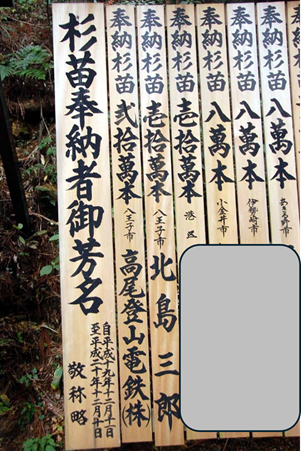 杉苗奉納者御芳名
自平成十九年十二月廿一日
至平成二十年十二月廿日
敬称略
奉納杉苗 貮拾萬本 八王子市 高尾登山電鉄(株)
奉納杉苗 壱拾萬本 八王子市 北島三郎
奉納杉苗 壱拾萬本 港区
奉納杉苗 八萬本 小金井市
奉納杉苗 八萬本 伊勢崎市
奉納杉苗 八萬本 あきる野市